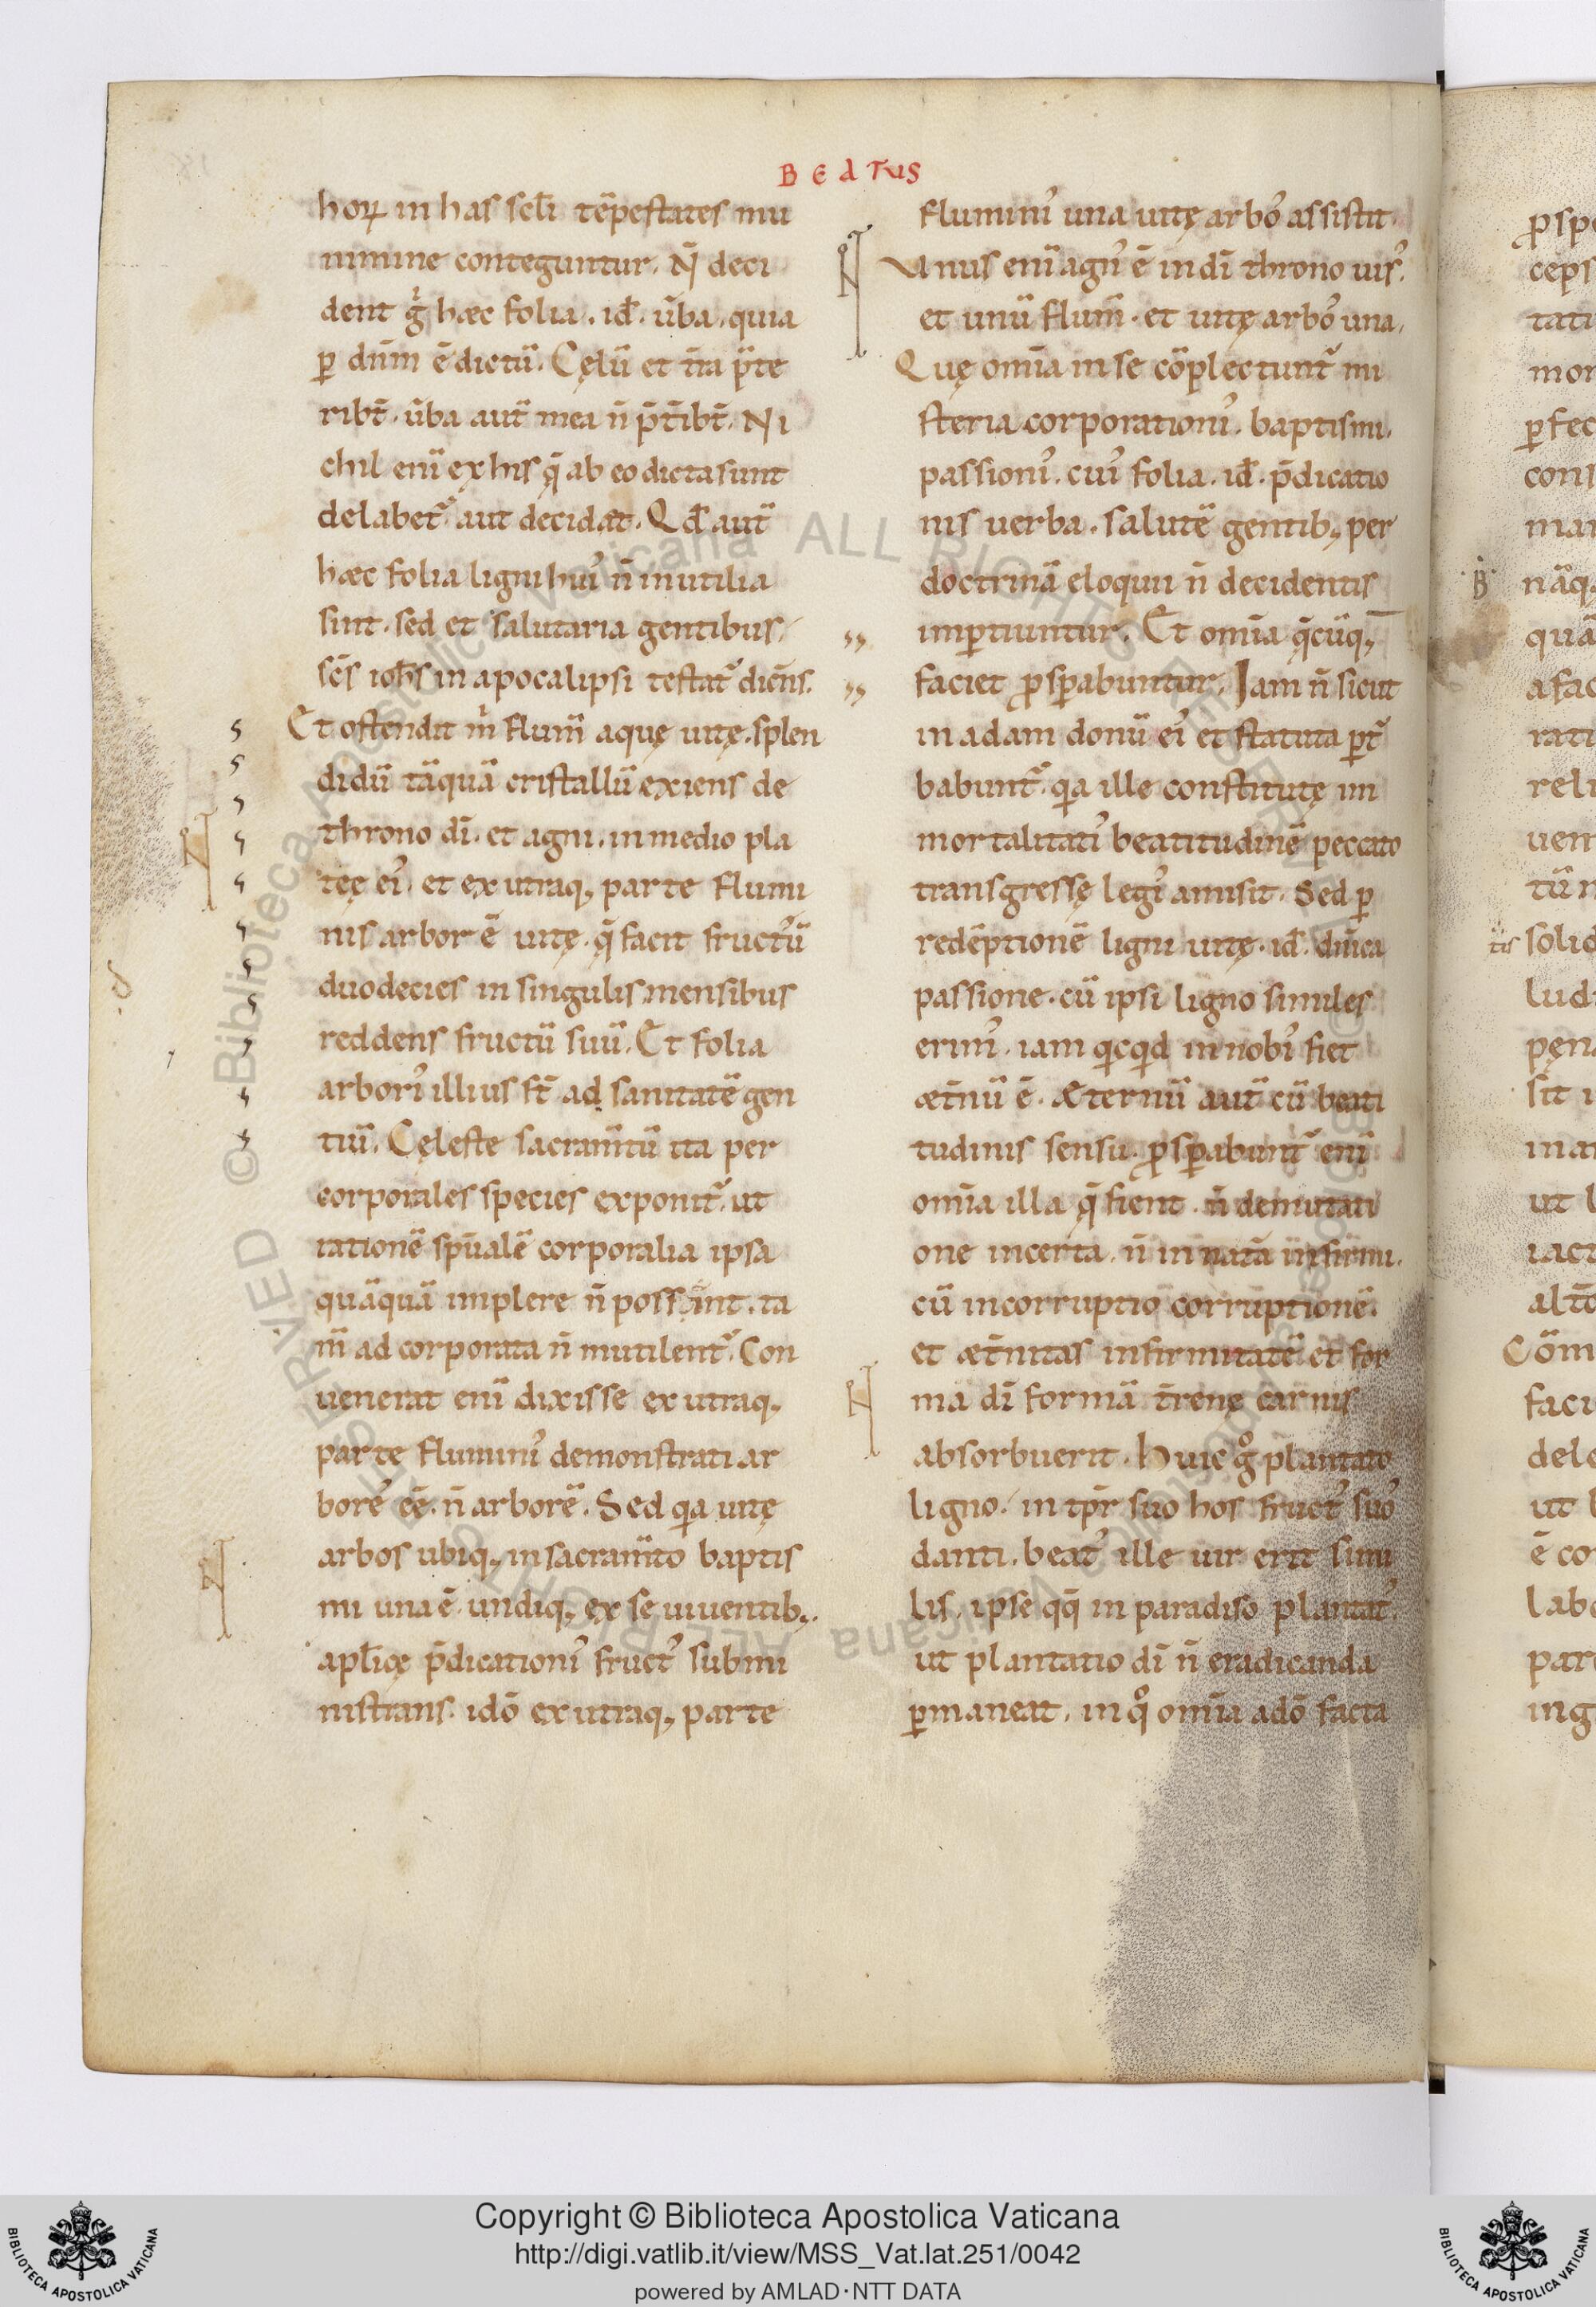 BEATUS
horꝝ in has scłi tēpestates mu
nimine conteguntur. N̄ deci
dent g̓ hæc folia. id̄. ūba. quia
ꝑ dn̄m ē dictū. Cęlū et t̄ra p̄te
ribt̄. ūba aut̄ mea n̄ p̄t̄ibt̄. Ni
chil enī ex his q̄ ab eo dicta sunt
delabet᷑ aut decidat. Qd̄ aut̄
hæc folia ligni hui᾽ n̄ inutilia
sint. sed et salutaria gentibus.
sc̄s ioh̄s in apocalipsi testat᷑ dicēns.
Et ostendit m̓ flum̄ aquę uitę. splen
didū tāquā cristallū exiens de
throno dī. et agni. in medio pla
teę ei᾽. et ex utraq; parte flumi
nis arbor ē uitę. q̄ facit fructū
duodecies in singulis mensibus
reddens fructū suū. Et folia
arbori᾽ illius st̄ ad sanitatē gen
tiū. Cęleste sacram̄tū ita per
corporales species exponit᷑. ut
rationē sp̄ualē corporalia ipsa
quāquā implere n̄ possint. ta
m̄ ad corporata n̄ mutilent᷑. Con
uenerat enī dixisse ex utraq;
parte flumini᾽ demonstrati ar
bore᾽ eē. n̄ arborē. Sed qia uitę
arbos ubiq; in sacram̄to baptis
mi una ē. undiq; ex se uiuentib;.
apl̄icę p̄dicationi᾽ fruct᾽ submi
nistrans. idō ex utraq; parte
flumini᾽ una uitę arbo᾽ assistit.
Vnus enī agn᾽ ē in dī throno uis᾽.
et unū flum̄. et uitę arbo᾽ una.
Quę omīa in se cōplectunt᷑ mi
steria corporationi᾽. baptismi.
passioni᾽. cui᾽ folia. id̄. p̄dicatio
nis uerba. salutē gentib; per
doctrinā eloquii n̄ decidentis
imꝑtiuntur. Et omīa q̄cūq;
faciet ꝓsꝑabuntur. Iam n̄ sicut
in adam donū ei᾽ et statuta ꝑt᷑
babunt᷑. qia ille constitutę im
mortalitati᾽ beatitudinē peccato
transgressę legi᾽ amisit. Sed ꝑ
redēptionē ligni uitę. id̄. dn̄ica
passione. cū ipsi ligno similes
erim᾽. iam qicqid in nobi᾽ fiet
æt̄nū ē. Æternū aut̄ cū beati
tudinis sensu. ꝓsꝑabunt᷑ enī
omīa illa q̄ fient. n̄ demutati
one incerta. n̄ in natā infirmi.
cū incorruptio corruptionē.
et æt̄nitas infirmitatē et for
ma dī formā t̄renę carnis
absorbuerit. Huic g̊ plantato
ligno. in tp̄r suo hos fruct᾽ suo᾽
danti. beat᾽ ille uir erit simi
lis. ipse qq̄ in paradiso plantat᾽.
ut plantatio dī n̄ eradicanda
ꝑmaneat. in q̊ omīa adō facta
ꝓspe
ceps
tati
mor
ꝑfec
cons
man
nāq
quā
a fac
rati
reli
uen
tū n
tis solid
ludi
pęna
sit i
inar
ut l
iact
altō
Cōm
faci
dele
ut l
ē co
labo
part
ing
Copyright © Biblioteca Apostolica Vaticana
http://digi.vatlib.it/view/MSS_Vat.lat.251/0042
powered by AMLAD·NTT DATA
BIBLIOTECA APOSTOLICA VATICANA
BIBLIOTECA APOSTOLICA VATICANA